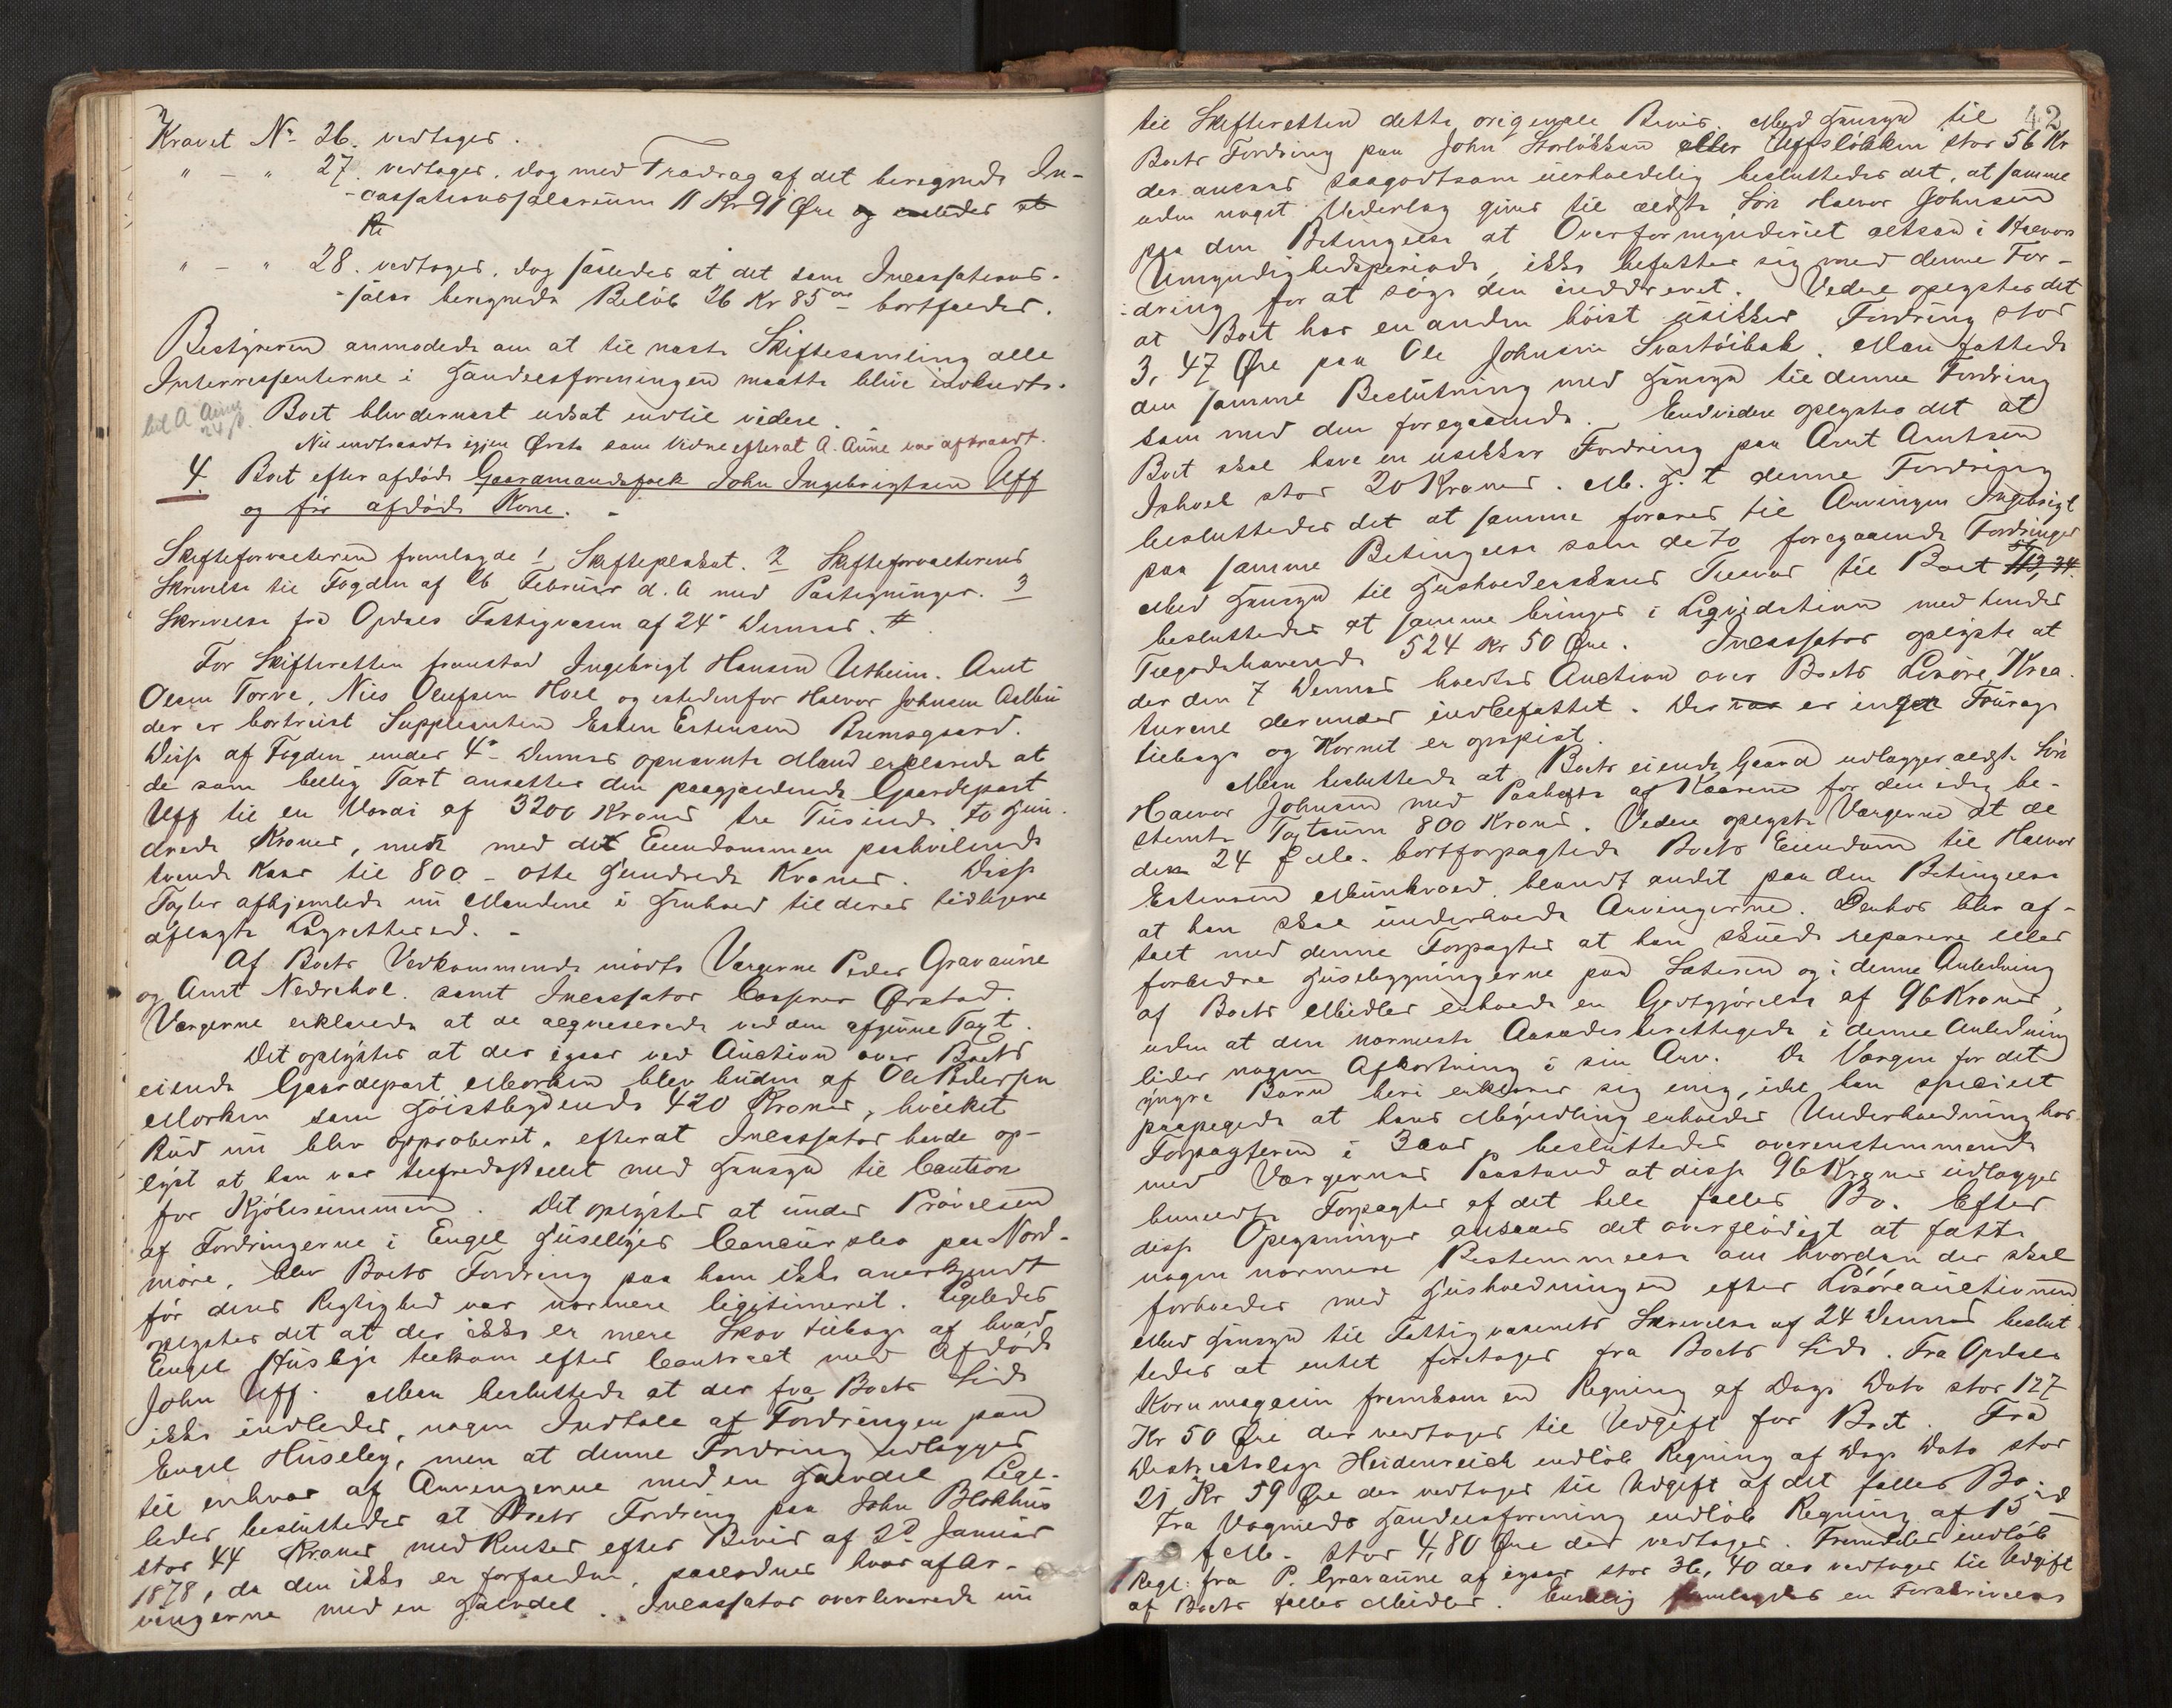 Kravet No 26. vedtages.
" - " 27. vedtages, dog med Fradrag af det beregnede In-
-cassationssalarium 11 Kr 91 Øre og
" - " 28. vedtages, dog saaledes at det som Incassations-
-salær beregnede Beløb 26 Kr 85 øre bortfalder.
Bestyreren anmodede om at til næste Skiftesamling alle
Interressenterne i Handelsforeningen maatte blive indkaldte.
Boet blev dernæst udsat indtil videre.
Nu indtraadte igjen Ørsta som Vidne efterat A. Aune var aftraadt.
4. Boet efter afdøde Gaardmandsfolk John Ingebrigtsen Uff
og før afdøde Kone. -
Skifteforvalteren fremlagde 1 Skifteplakat. 2 Skifteforvalterens
Skrivelse til Fogden af 26 Februar d. A med Paategninger. 3
Skrivelse fra Opdals Fattigvæsen af 24de dennes. #
For Skifteretten fremstod Ingebrigt Hansen Utheim. Arnt
Olsen Torve, Nils Olufsen Hoel og istedenfor Halvor Johnsen Aalbu
der er bortreist Suppleanten Esten Estensen Bramsgaard.
Disse af Fogden under 4de dennes opnævnte Mænd erklærede at
de som billig Taxt ansætter den paagjældende Gaardepart
Uff til en Værdi af 3200 Kroner tre Tusinde to Hun-
drede Kroner, men med det Eiendommen paahvilende
Kaar til 800 - otte Hundrede Kroner. Disse
Taxter afhjemlede nu Mændene i Henhold til deres tidligere
aflagte Lagretteed. -
Af Boets Vedkommende mødte Værgerne Peder Gravaune
og Arnt Nedrehol. samt Incassator Casper Ørstad.
Værgerne erklærede at de acqvieserede ved den afgivne Taxt.
Det oplystes at der igaar ved Auction over Boets
eiende Gaardepart Morken blev buden af Ole Pedersen
Morken som Høistbydende 420 Kroner, hvilket
Bud nu blev approberet, efterat Incassator havde op-
lyst at han var tilfredsstillet med Hensyn til Caution
for Kjøbesummen. Det oplystes at under Prøvelsen
af Fordringerne i Engel Huselÿes Concursbo paa Nord-
møre, blev Boets Fordring paa ham ikke anerkjendt
før dens Rigtighed var nærmere legitimeret. Ligeledes
oplystes det at der ikke er mere Skov tilbage af hvad
Engel Husbÿe tilkom efter Contract med Afdøde
John Uff. Man besluttede at der fra Boets Side
ikke indledes, nogen Indtale af Fordringen paa
Engel Huseby, men at denne Fordring udlægges
til enhver af Arvingerne med en Halvdel. Lige-
ledes besluttedes at Boets Fordring paa John Blokhus
stor 44 Kroner med Renter efter Bevis af 2d Januar
1878, da den ikke er forfalden, udlodnes hver af Ar-
vingerne med en Halvdel. Incassator overleverede nu
42
til Skifteretten dette originale Bevis. Med Hensyn til
Boets Fordring paa John Storløkken eller Uffsløkken stor 56 Kr
der ansees saagodtsom uerholdelig besluttedes det, at samme
uden noget Vederlag gives til ældste Søn Halvor Johnsen
paa den Betingelse at Overformynderiet altsaa i Halvors
Umyndighedsperiode, ikke befatter sig med denne For-
-dring for at søge den inddrevet. Videre oplystes det
at Boet har en anden høist usikker Fordring stor
3, 47 Øre paa Ole Johnsen Svartøibak. Man fattede
den samme Beslutning med Hensyn til denne Fordring
som med den foregaaende. Endvidere oplystes det at
Boet skal have en usikker Fordring paa Arnt Arntsen
Ishoel stor 20 Kroner. M. H. t denne Fordring
besluttedes det at samme foræres til Arvingen Ingebrigt
paa samme Betingelse som de to foregaaende Fordringer
Med Hensyn til Husholderskens Tilsvar til Boet 112, 34.
besluttedes at samme bringes i Liqvidation med hendes
Tilgodehavende 524 Kr 50 Øre. Incassator oplyste at
der den 7 dennes holdtes Auction over Boets Løsøre, Krea-
turene derunder indbefattet. Der er inget Fourage
tilbage og Kornet er opspist.
Man besluttede at Boets eiende Gaard udlægges ældste Søn
Halvor Johnsen med Paahefte af Kaarene for den idag be-
stemte Taxtsum 800 Kroner. Videre oplyste Værgerne at de
den 24 f. M. bortforpagtede Boets Eiendom til Halvor
Estensen Munkvold blandt andet paa den Betingelse
at han skal underholde Arvingerne. Derhos blev af-
talt med denne Forpagter at han skulde reparere eller
forbedre Husebygningerne paa Sæteren og i denne Anledning
af Boets Midler erholde en Godtgjørelse af 96 Kroner,
uden at den nærmeste Aasædesberettigede i denne Anledning
lider nogen Afkortning i sin Arv. Da Værgen for det
yngre Barn heri erklærer sig enig, idet han specielt
paapegede at hans Myndling erholder Underholdning hos
Forpagteren i 3 Aar besluttedes overensstemmende
med Værgernes Paastand at disse 96 Kroner udlægges
bemeldte Forpagter af det hele fælles Bo. Efter
disse Oplysninger ansaaes det overflødigt at fatte
nogen nærmere Bestemmelse om hvordan der skal
forholdes med Husholdningen efter Løsøreauctionen
Med Hensyn til Fattigvæsenets Skrivelse af 24 dennes beslut-
tedes at intet foretages fra Boets Side. Fra Opdals
Kornmagasin fremkom en Regning af Dags Dato stor 127
Kr 50 Øre der vedtages til Udgift for Boet. Fra
Districtslæge Heidenreich indløb Regning af Dags Dato stor
21 Kr 59 Øre der vedtages til Udgift af det fælles Bo
Fra Vognilds Handelsforening indløb Regning af 15de
f. M. stor 4,80 Øre der vedtages. Fremdeles indløb
Regl: fra P. Gravaune af igaar stor 36, 40 der vedtages til Udgift
af Boets fælles Midler. Endelig fremlagdes en Forskrivelse